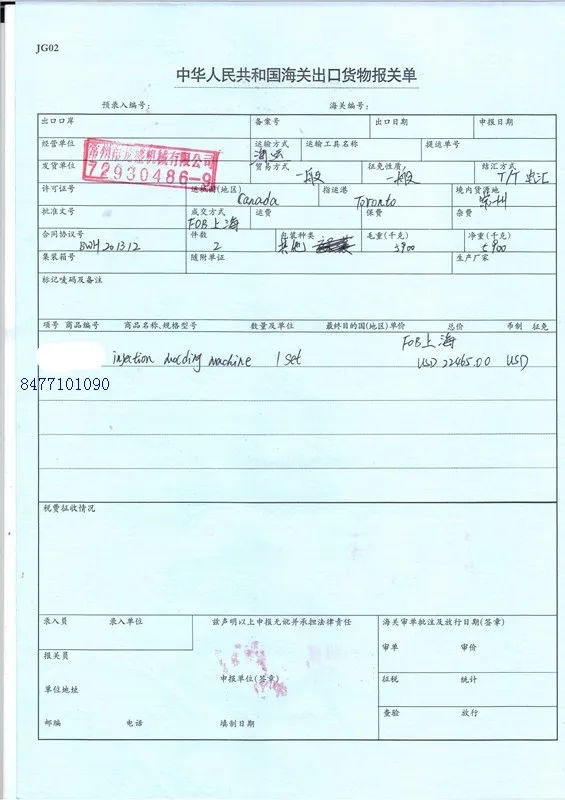 JG02
中华人民共和国海关出口货物报关单
预录入编号: 海关编号:
出口口岸 备案号 出口日期 申报日期
经营单位 运输方式 运输工具名称 提运单号
海运
州 盛机械有限公司
72930486-9
发货单位 贸易方式 征免性质 结汇方式
一般 一般 T/T 电汇
许可证号 运抵国(地区) 指运港 境内货源地
Canada Toronto 常州
批准文号 成交方式 运费 保费 杂费
FOB 上海
合同协议号 件数 包装种类 毛重(千克) 净重(千克)
BWH201312 2 其他
集装箱号 随附单证 生产厂家
标记唛码及备注
项号 商品编号 商品名称、规格型号 数量及单位 最终目的国(地区)单价 总价 币制 征免
FOB上海
injection molding machine 1 set USD 22465.00 USD
8477101090
税费征收情况
录入员 录入单位 兹声明以上申报无讹并承担法律责任 海关审单批注及放行日期(签章)
审单 审价
报关员
申报单位(签章) 征税 统计
单位地址
查验 放行
邮编 电话 填制日期